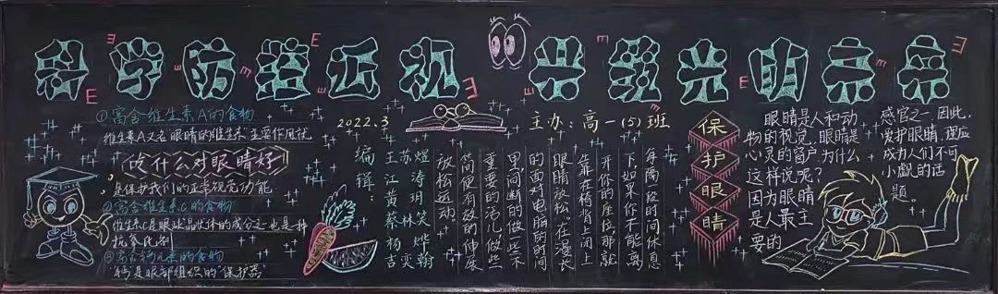 科学防控近视 共筑光明未来
①富含维生素A的食物
维生素A又名眼睛的维生素 主要作用就
吃什么对眼睛好
是保护我们的正常视觉功能
②富含维生素C的食物
维生素C是眼球晶状体的成分之一也是一种
③富含钙元素的食物
钙是眼部组织的保护器
2022.3
主办:高一(5)班
编辑:
王苏煜
江涛
黄玥
蔡林笑
杨烨
吉奕翰
每隔一段时间休息
下如果你不能离
开你的座位那就
靠在椅背上闭上
眼睛放松在漫长
的面对电脑的时间
里间断的做些不
重要的活儿做些
简便有效的伸展
放松运动
保护眼睛
眼睛是人和动
物的视觉,眼睛是
心灵的窗户为什么
这样说呢?
因为眼睛
是人最主
要的
感官之一因此,
爱护眼睛,理应
成为人们不可
小觑的话
题。